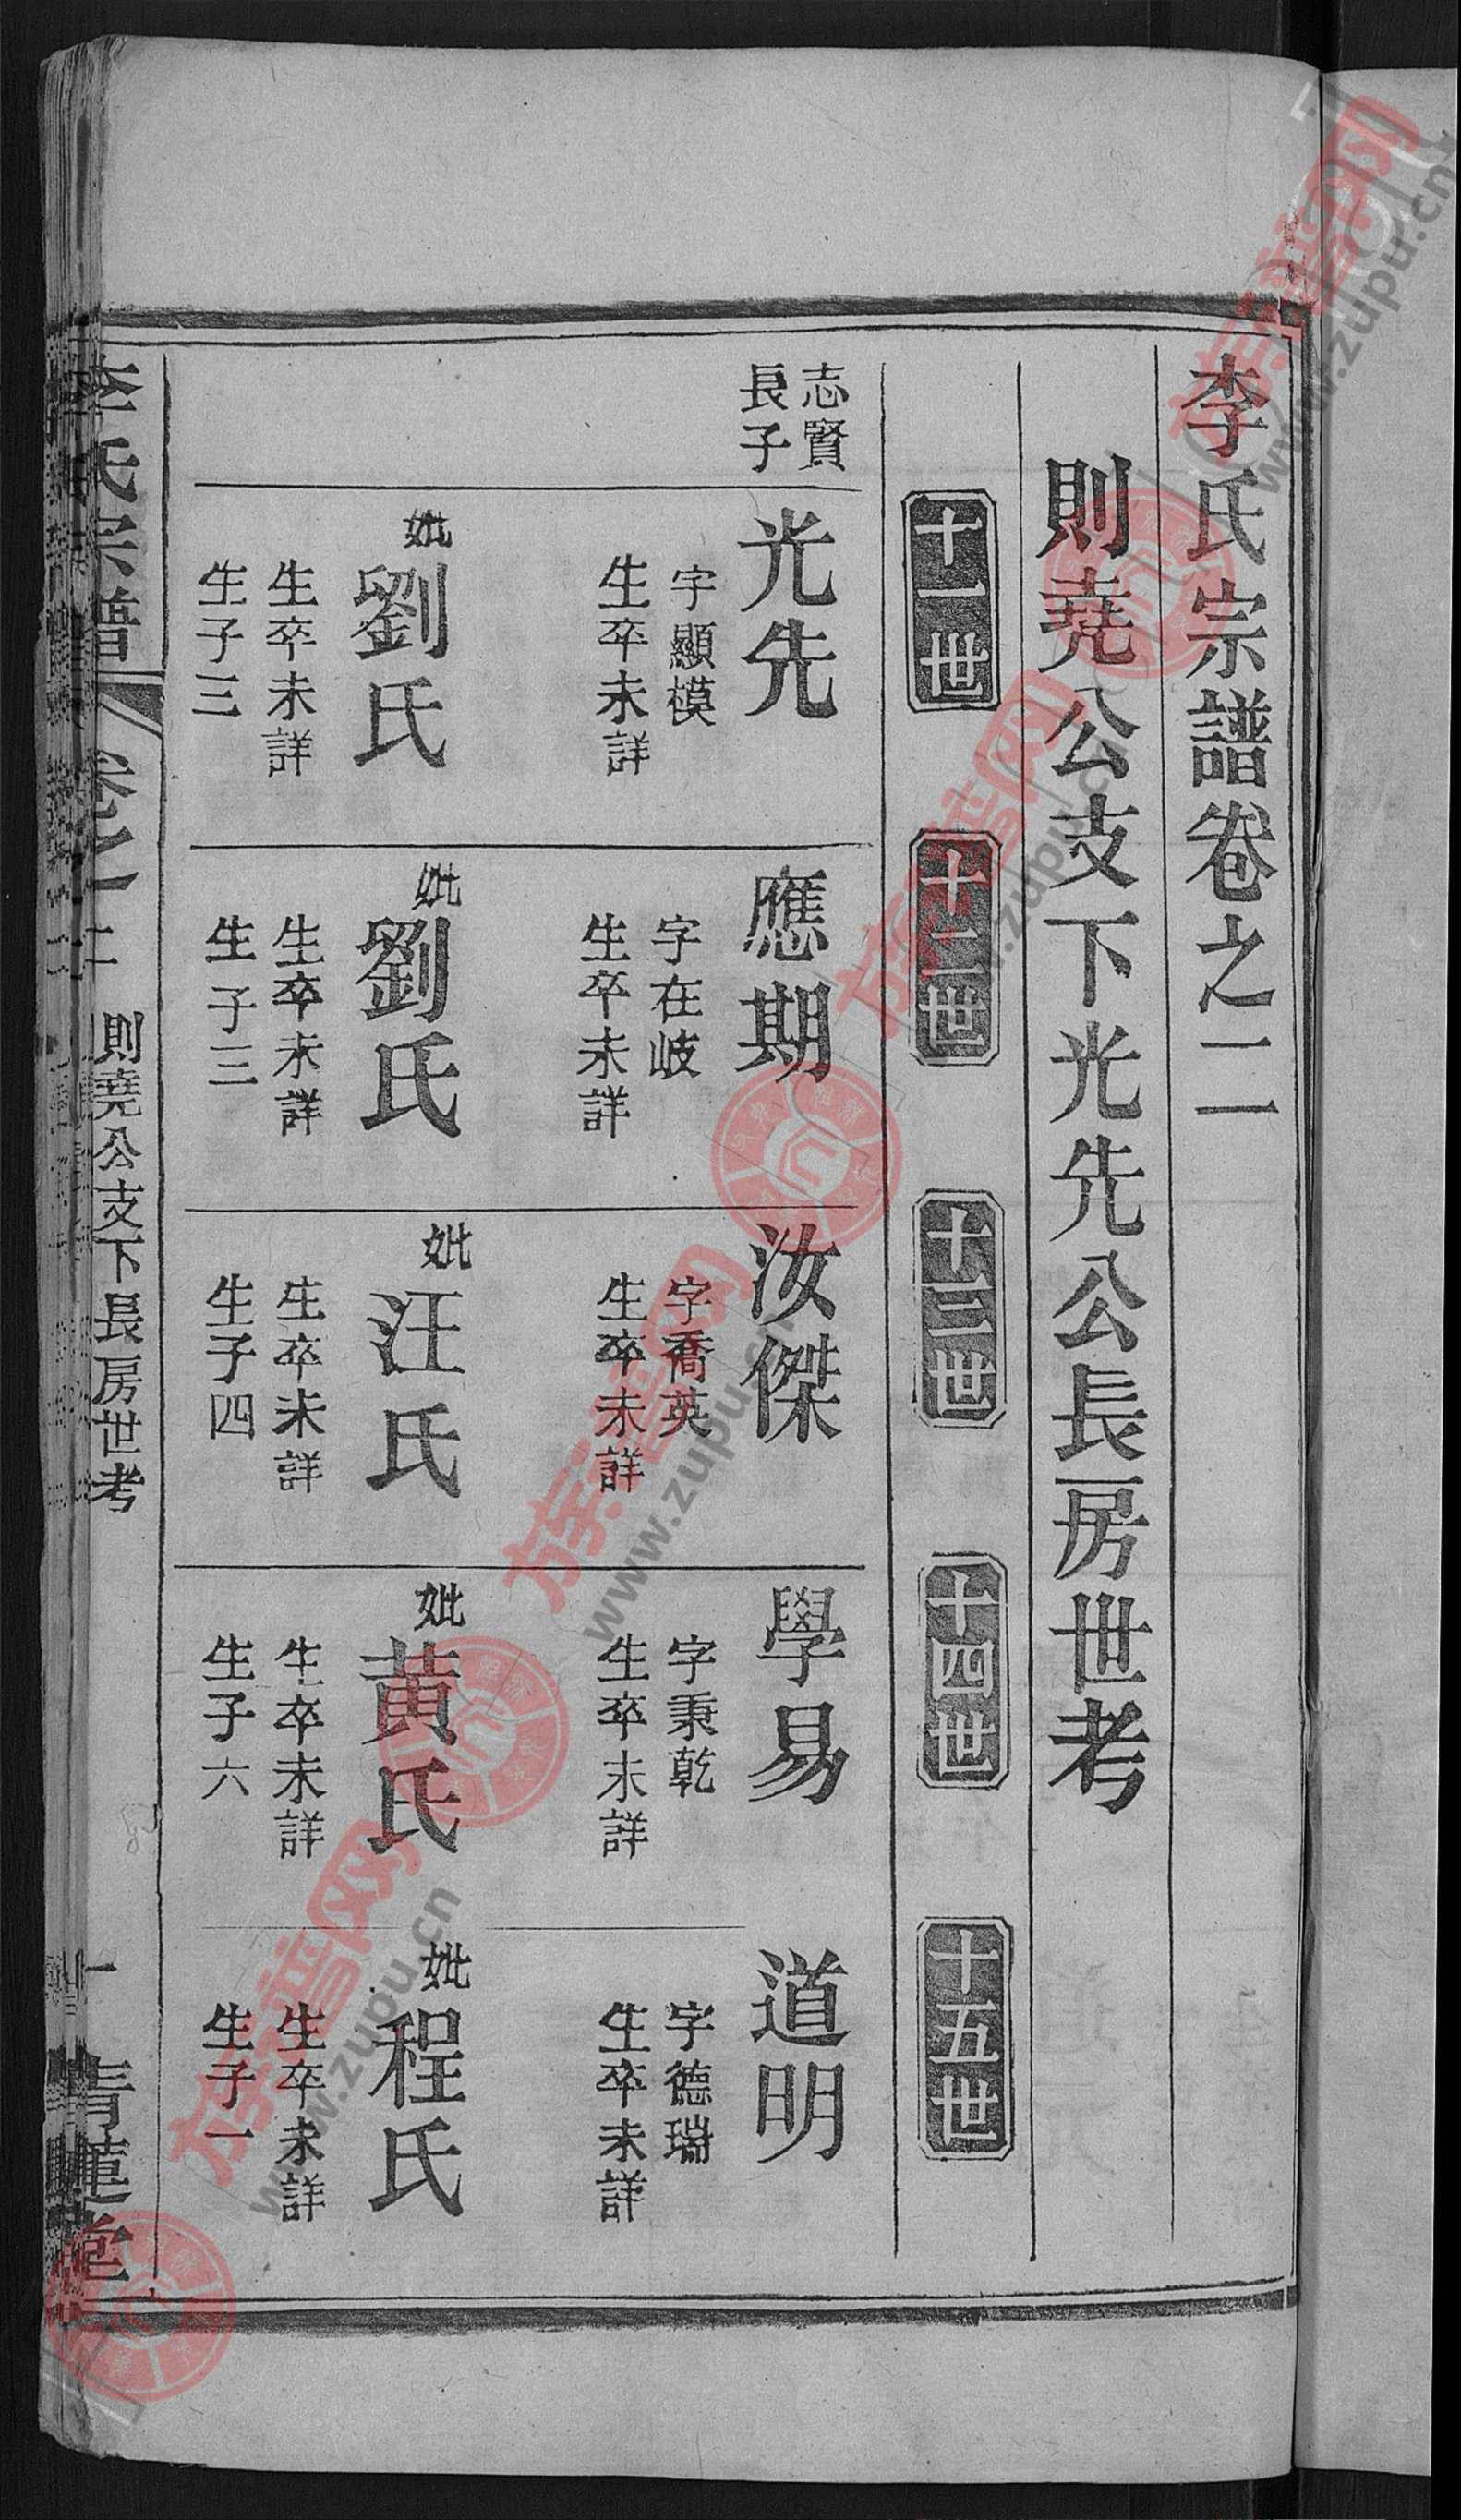 李氏宗譜卷之二
則堯公支下光先公長房世考
十一世
十二世
十三世
十四世
十五世
志賢
長子
光先
字顯模
生卒未詳
妣劉氏
生卒未詳
生子三
應期
字在岐
生卒未詳
妣劉氏
生卒未詳
生子三
汝傑
字喬英
生卒未詳
妣汪氏
生卒未詳
生子四
學易
字秉乾
生卒未詳
妣黃氏
生卒未詳
生子六
道明
字德瑞
生卒未詳
妣程氏
生卒未詳
生子一
李氏宗譜 卷之二 則堯公支下長房世考 一 青蓮堂
族譜网
www.zupu.cn
族譜网
www.zupu.cn
族譜网
www.zupu.cn
族譜网
www.zupu.cn